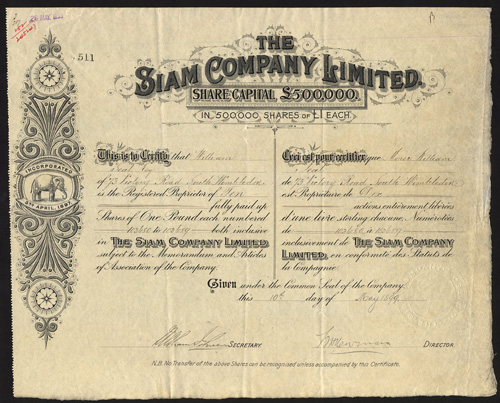 511
THE
SIAM COMPANY LIMITED.
SHARE CAPITAL £500,000.
IN 500,000 SHARES OF £1 EACH.
INCORPORATED
9TH APRIL, 1897
This is to Certify that William
of 73 Victory Road South Wimbledon
is the Registered Proprietor of Ten
fully paid up
Shares of One Pound each numbered
to both inclusive
in THE SIAM COMPANY LIMITED,
subject to the Memorandum and Articles
of Association of the Company.
Ceci est pour certifier que William
de 73 Victory Road, South Wimbledon
est Propriétaire de
actions entièrement libérées
d'une livre sterling chacune Numérotées
de à
inclusivement de THE SIAM COMPANY
LIMITED, en conformité des Statuts de
la Compagnie.
Given under the Common Seal of the Company
this 10th day of May 1899
SECRETARY.
DIRECTOR.
N.B. No Transfer of the above Shares can be recognised unless accompanied by this Certificate.